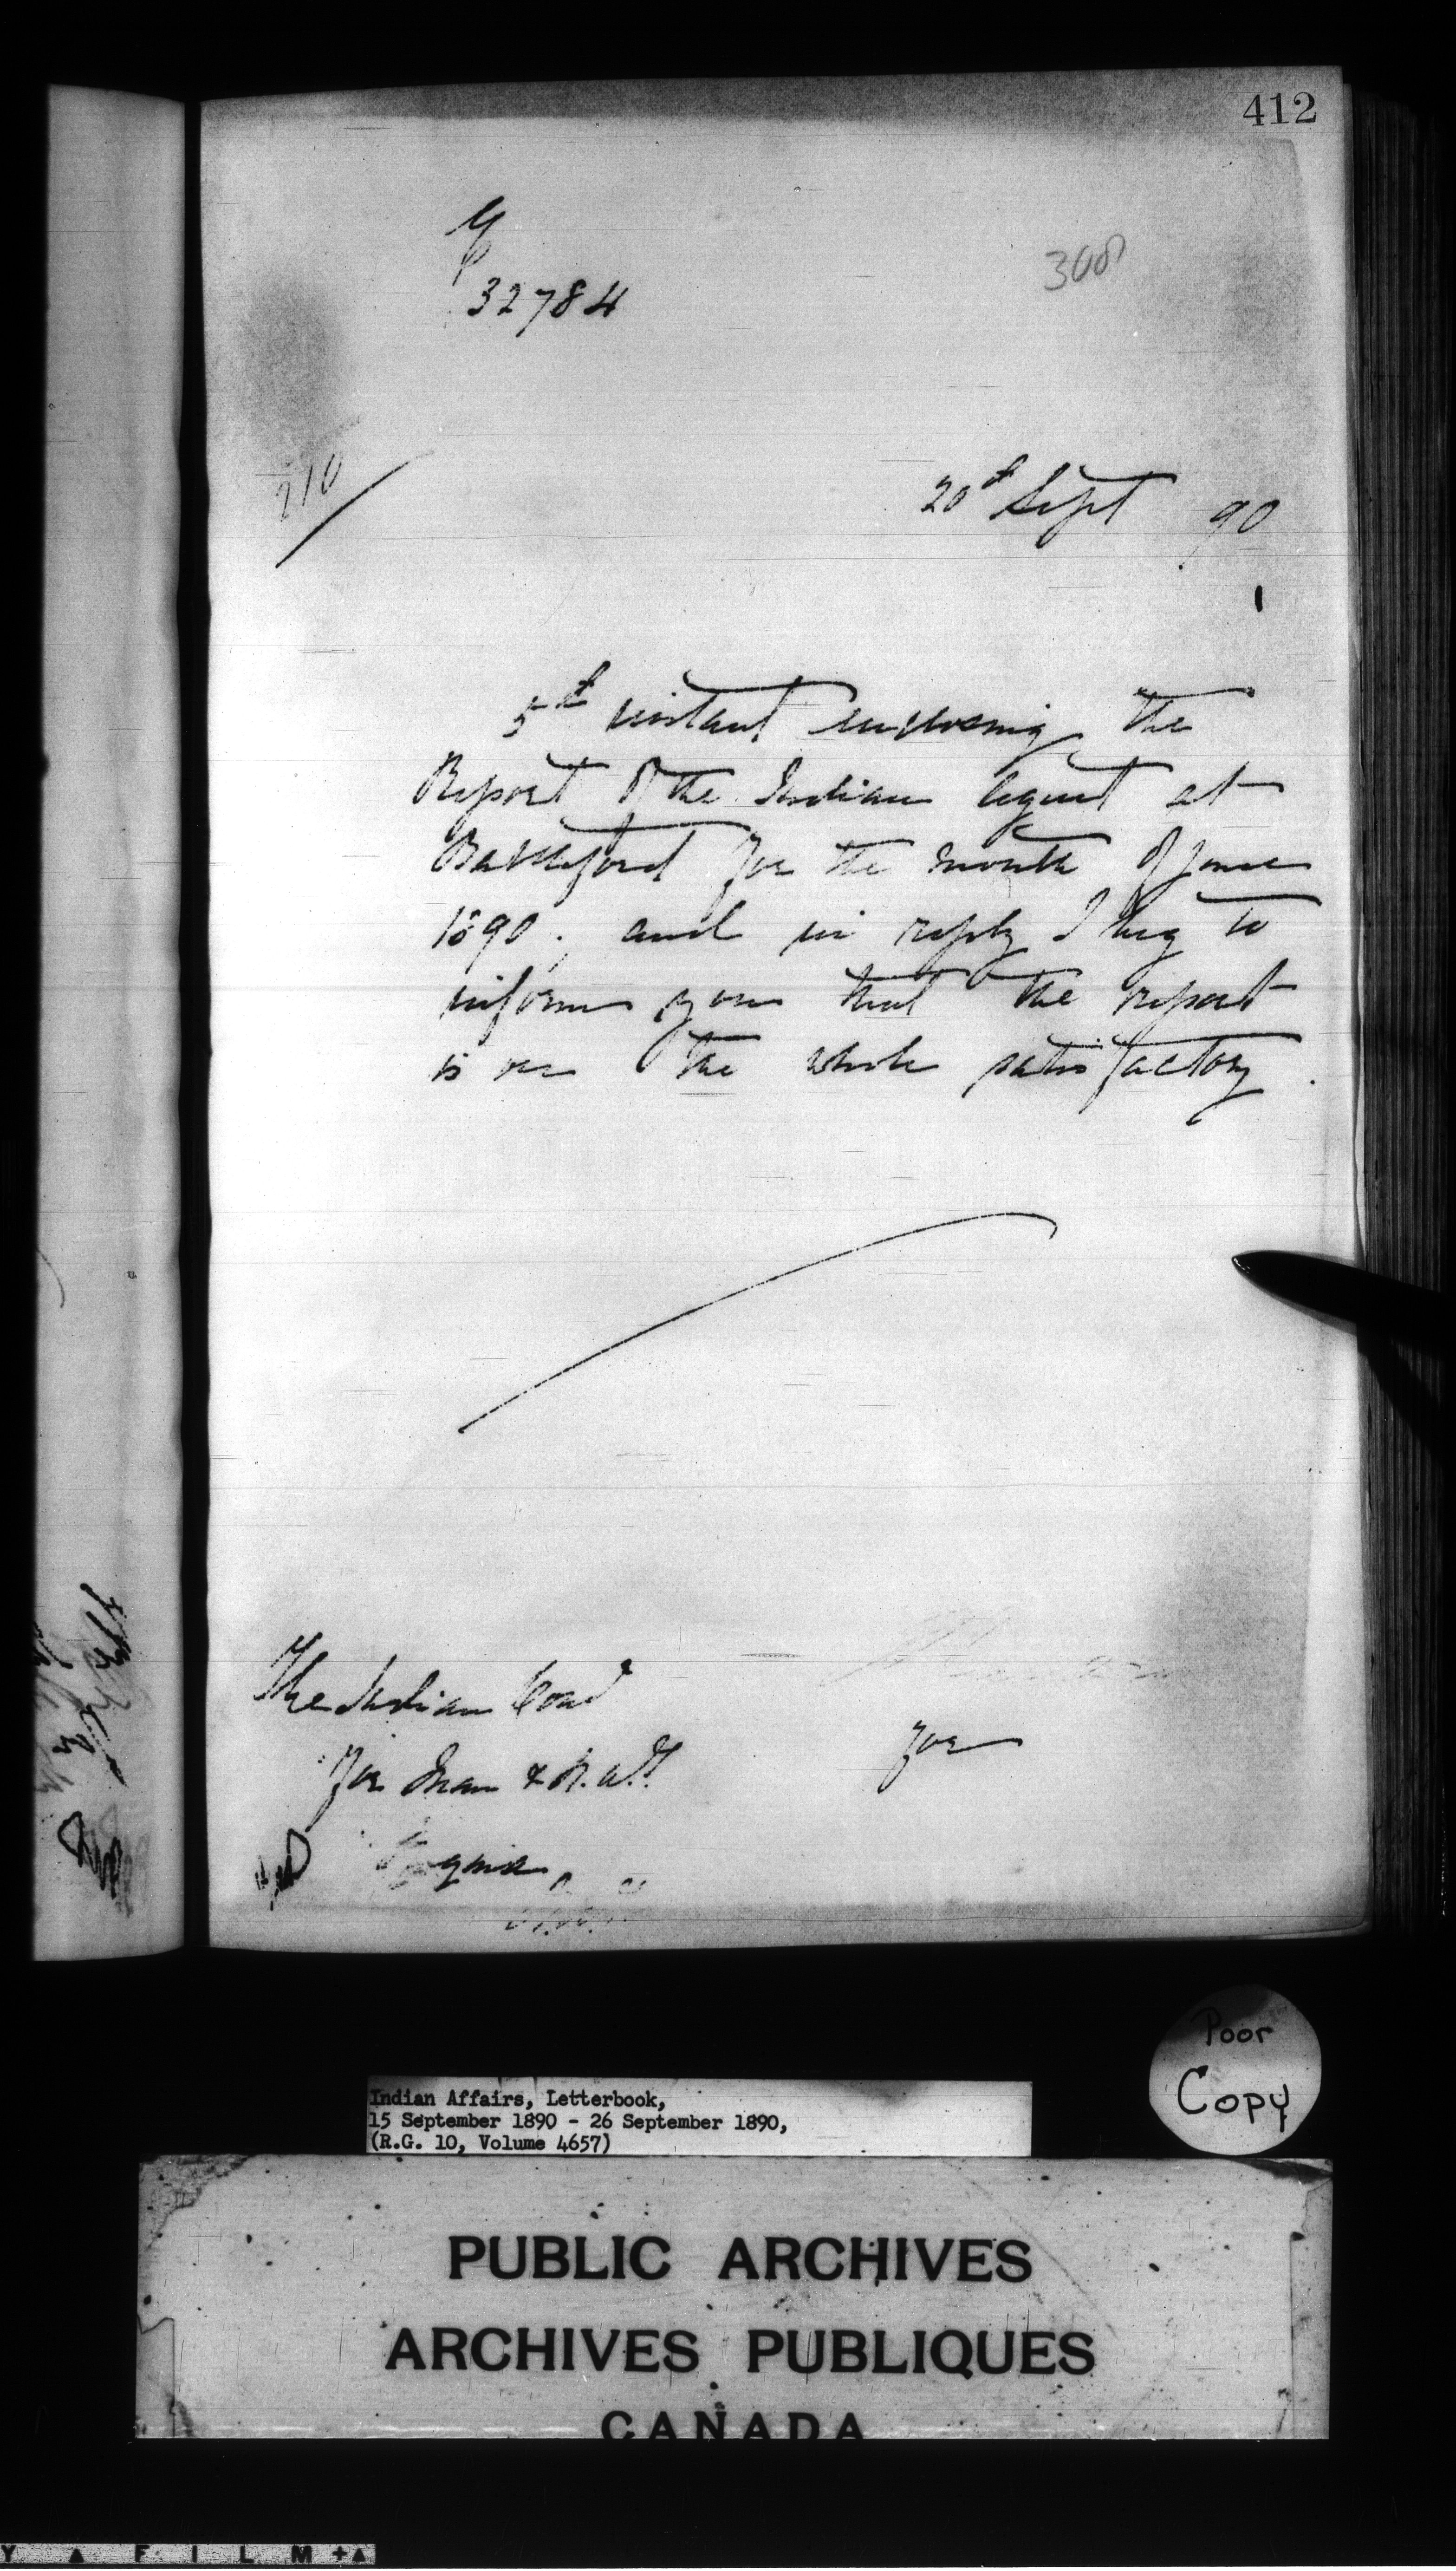 412
308
32784
210
20th Sept 90
5th instant enclosing the
Report of the Indian Agent at
Battleford for the month of June
1890, and in reply I beg to
inform you that the report
is on the whole satisfactory.
The Indian Comr
for Man & N.W.T.
Regina
for
Poor
Copy
Indian Affairs, Letterbook,
15 September 1890 - 26 September 1890,
(R.G. 10, Volume 4657)
PUBLIC ARCHIVES
ARCHIVES PUBLIQUES
CANADA
Y ▲ F I L M +▲